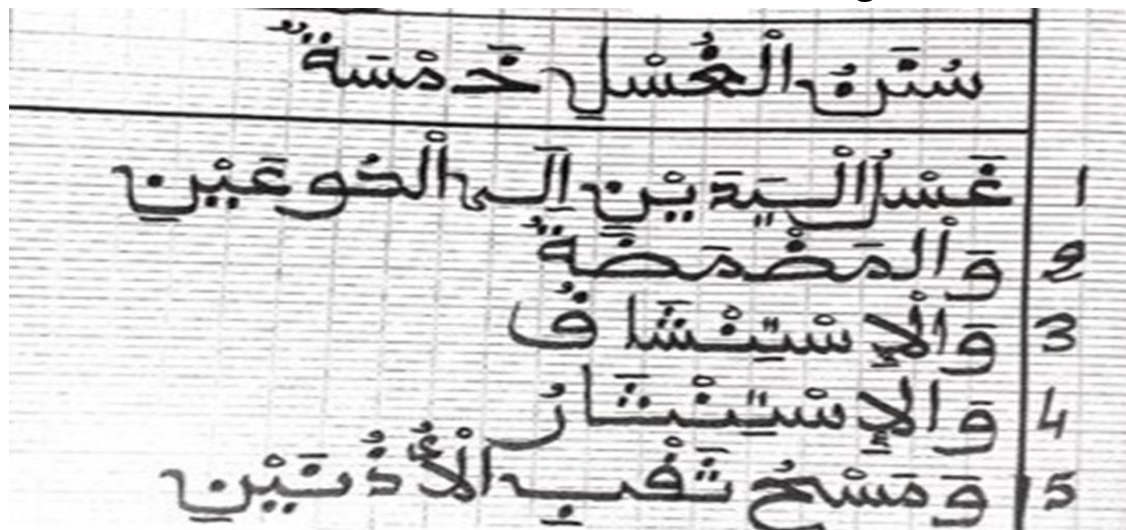 سُنَنُ الْغُسْلِ خَمْسَةٌ
1 غَسْلُ الْيَدَيْنِ إِلَى الْكُوعَيْنِ
2 وَالْمَضْمَضَةُ
3 وَالْإِسْتِنْشَاقُ
4 وَالإِسْتِنْثَارُ
5 وَمَسْحُ ثَقْبِ الْأُذُنَيْنِ